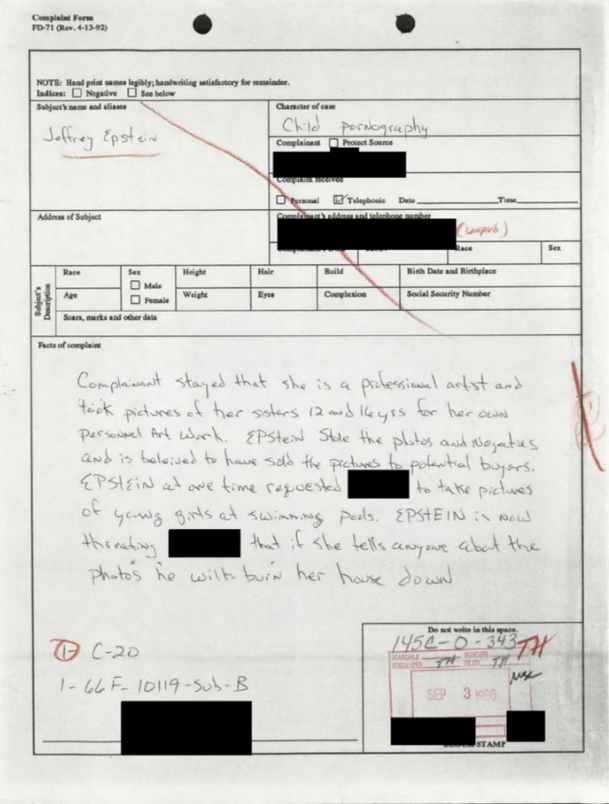 Complaint Form
FD-71 (Rev. 4-13-92)
NOTE: Hand print names legibly; handwriting satisfactory for remainder.
Indices: ☐ Negative ☐ See below
Subject's name and aliases
Jeffrey Epstein
Character of case
Child Pornography
Complainant ☐ Protect Source
Complaint received
☐ Personal ☑ Telephonic Date Time
Address of Subject
Complainant's address and telephone number
(unpub)
Race Sex
Subject's Description
Race Sex Height Hair Build Birth Date and Birthplace
☐ Male
Age ☐ Female Weight Eyes Complexion Social Security Number
Scars, marks and other data
Facts of complaint
Complainant stayed that she is a professional artist and
took pictures of her sisters 12 and 16 yrs for her own
personnel Art Work. EPStein Stole the photos and Negatives
and is beleived to have sold the pictures to potential buyers.
EPSTEIN at one time requested to take pictures
of young girls at swimming pools. EPSTEIN is now
threating that if she tells anyone about the
photos he will burn her house down
1- C-20
1-66F-10119-Sub-B
Do not write in this space.
145C-0-343
TH
SEARCHED INDEXED
SERIALIZED TH FILED TH
SEP 3 1996
BLOCK STAMP